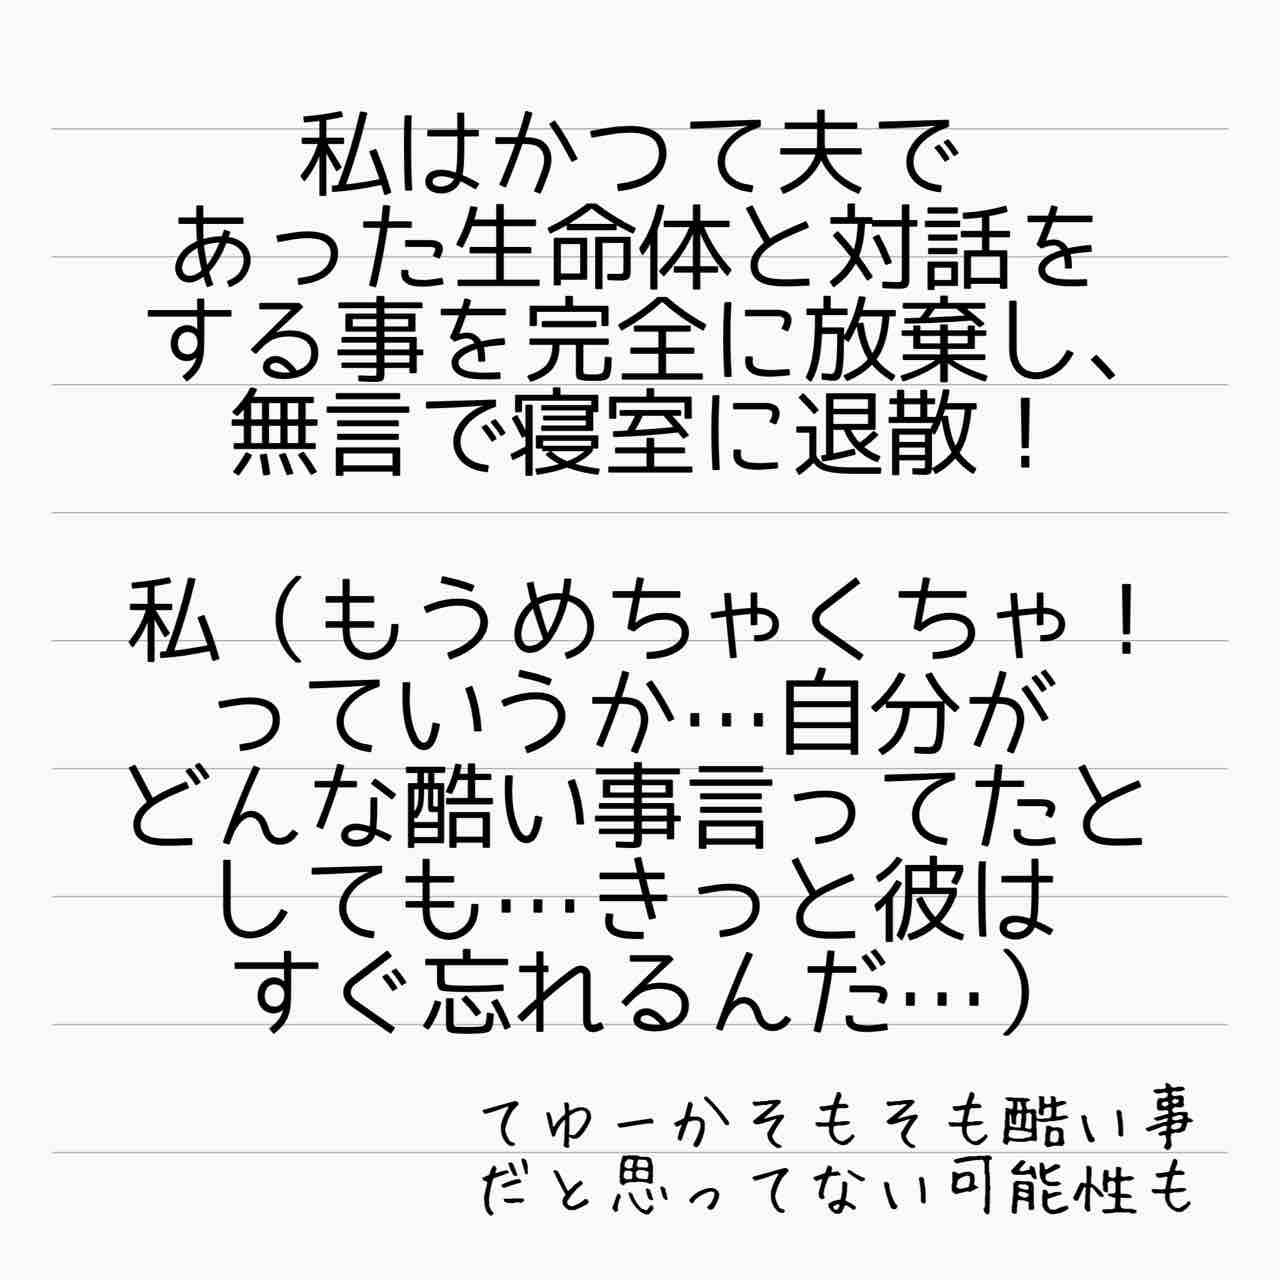 私はかつて夫で
あった生命体と対話を
する事を完全に放棄し、
無言で寝室に退散！
私（もうめちゃくちゃ！
っていうか…自分が
どんな酷い事言ってたと
しても…きっと彼は
すぐ忘れるんだ…）
てゆーかそもそも酷い事
だと思ってない可能性も